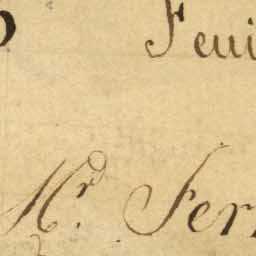 Feui
Mr. Fer